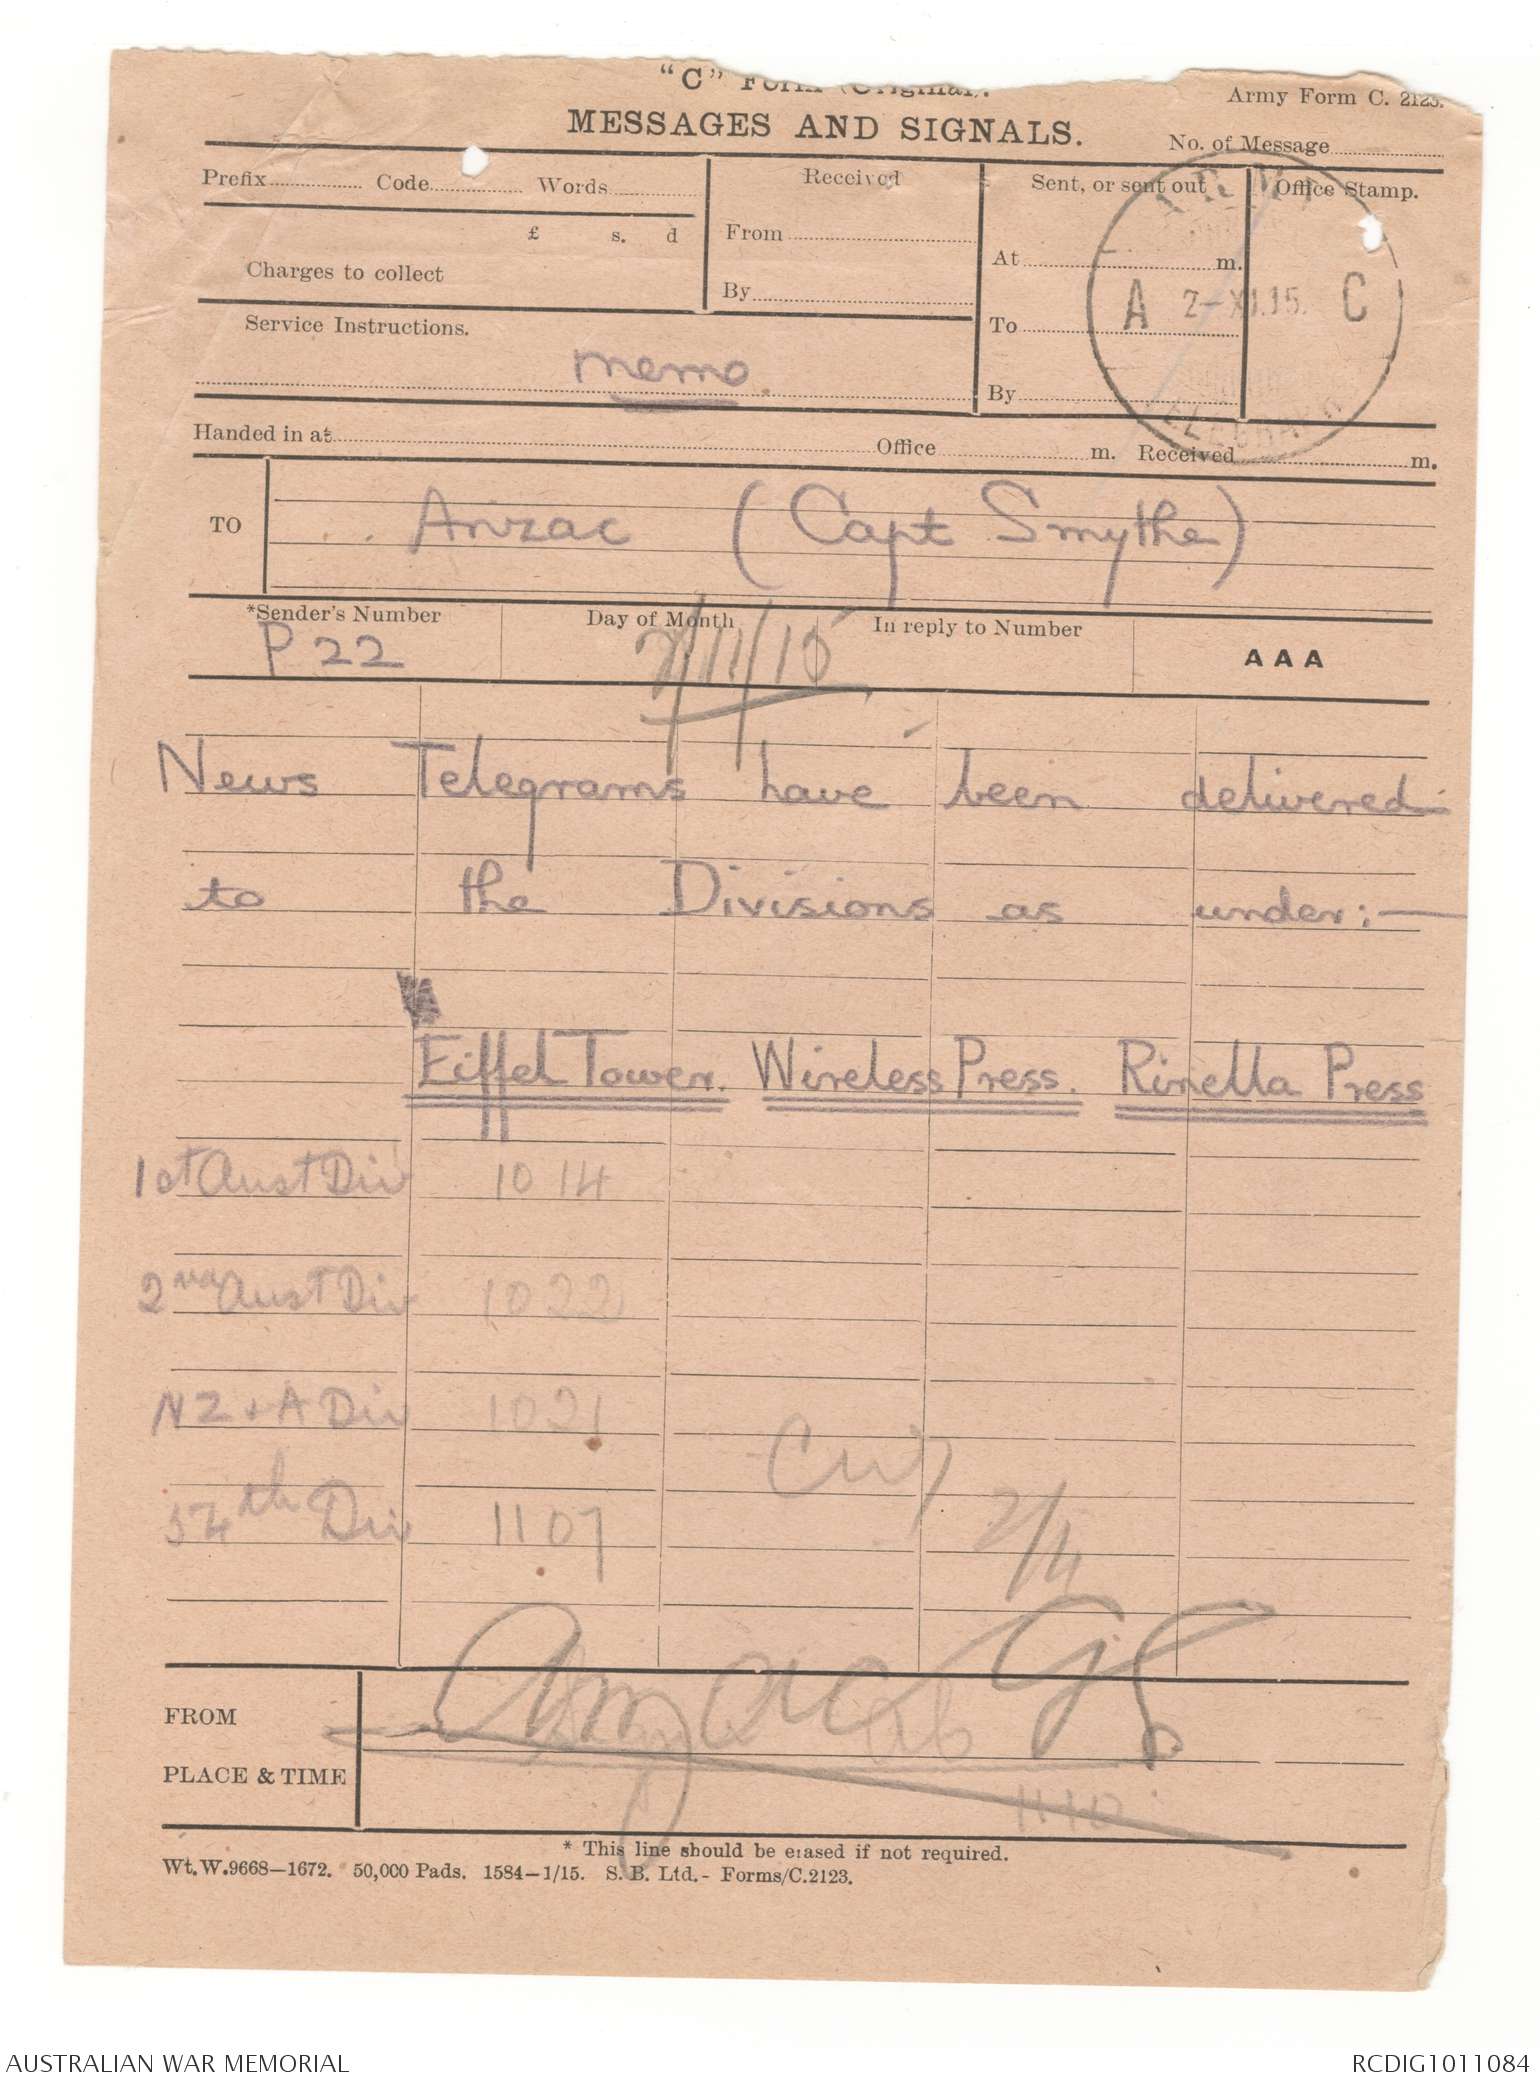 "C" Form (Original).
Army Form C. 2123.
MESSAGES AND SIGNALS.
No. of Message
Prefix Code Words
Received
Sent, or sent out
Office Stamp.
£ s. d
From
At m.
Charges to collect
By
A 2-XI.15. C
To
Service Instructions.
memo.
By
TELEGRAPH
Handed in at Office m. Received m.
TO Anzac (Capt Smythe)
*Sender's Number Day of Month In reply to Number
P 22 2/11/15 AAA
News Telegrams have been delivered
to the Divisions as under:—
Eiffel Tower. Wireless Press. Rinella Press
1st Aust Div 1014
2nd Aust Div 1022
NZ + A Div 1021
54th Div 1107
2/11
FROM Anzac
PLACE & TIME 1110
* This line should be erased if not required.
Wt. W.9668—1672. 50,000 Pads. 1584—1/15. S. B. Ltd.- Forms/C.2123.
AUSTRALIAN WAR MEMORIAL
RCDIG1011084